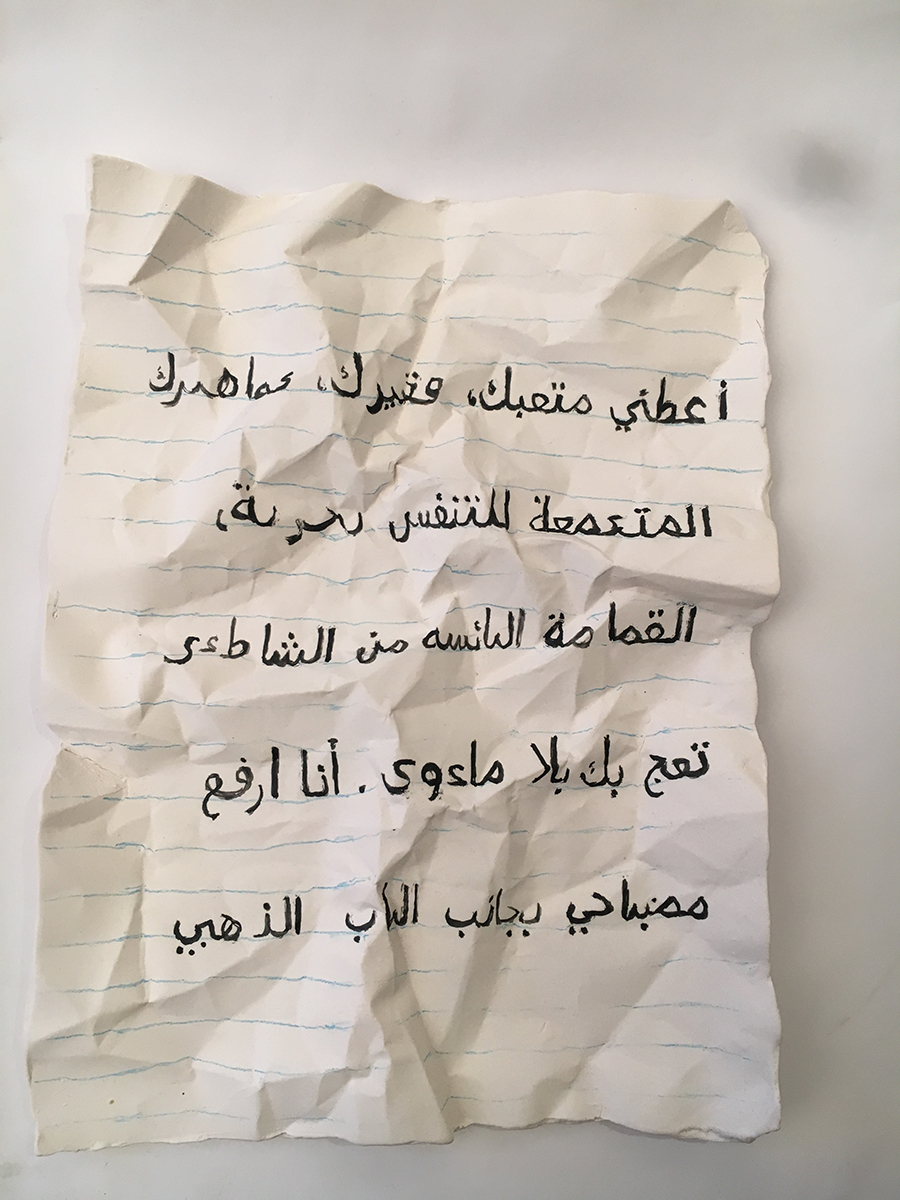 أعطني متعبك، فقيرك، جماهيرك
المتجمعة للتنفس بحرية،
القمامة البائسه من الشاطءى
تعج بك بلا ماءوى. أنا ارفع
مصباحي بجانب الباب الذهبي